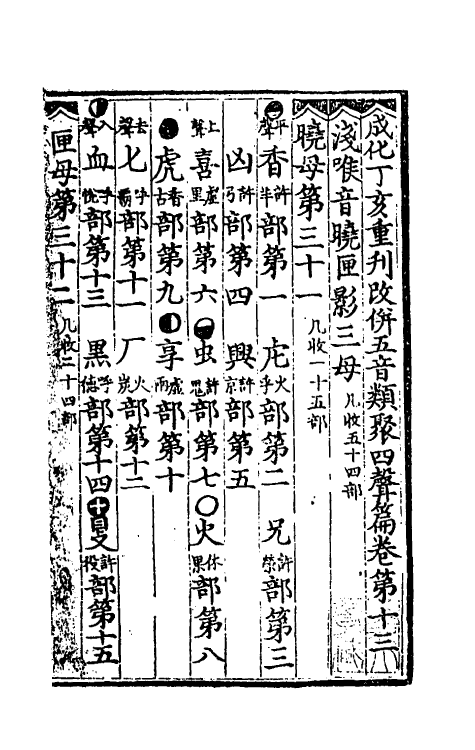 成化丁亥重刊改併五音類聚四聲篇卷第十三
淺喉音曉匣影三母凡收五十四部
曉母第三十一凡收一十五部
平聲香許羊部第一 虍火乎部第二 兄許榮部第三
凶許弓部第四 興許京部第五
上聲喜虛里部第六 虫許鬼部第七 火休果部第八
虎香古部第九 享虛兩部第十
去聲七呼霸部第十一 厂火炭部第十二
入聲血呼悅部第十三 黑呼德部第十四 𡕥許役部第十五
匣母第三十二凡收二十四部